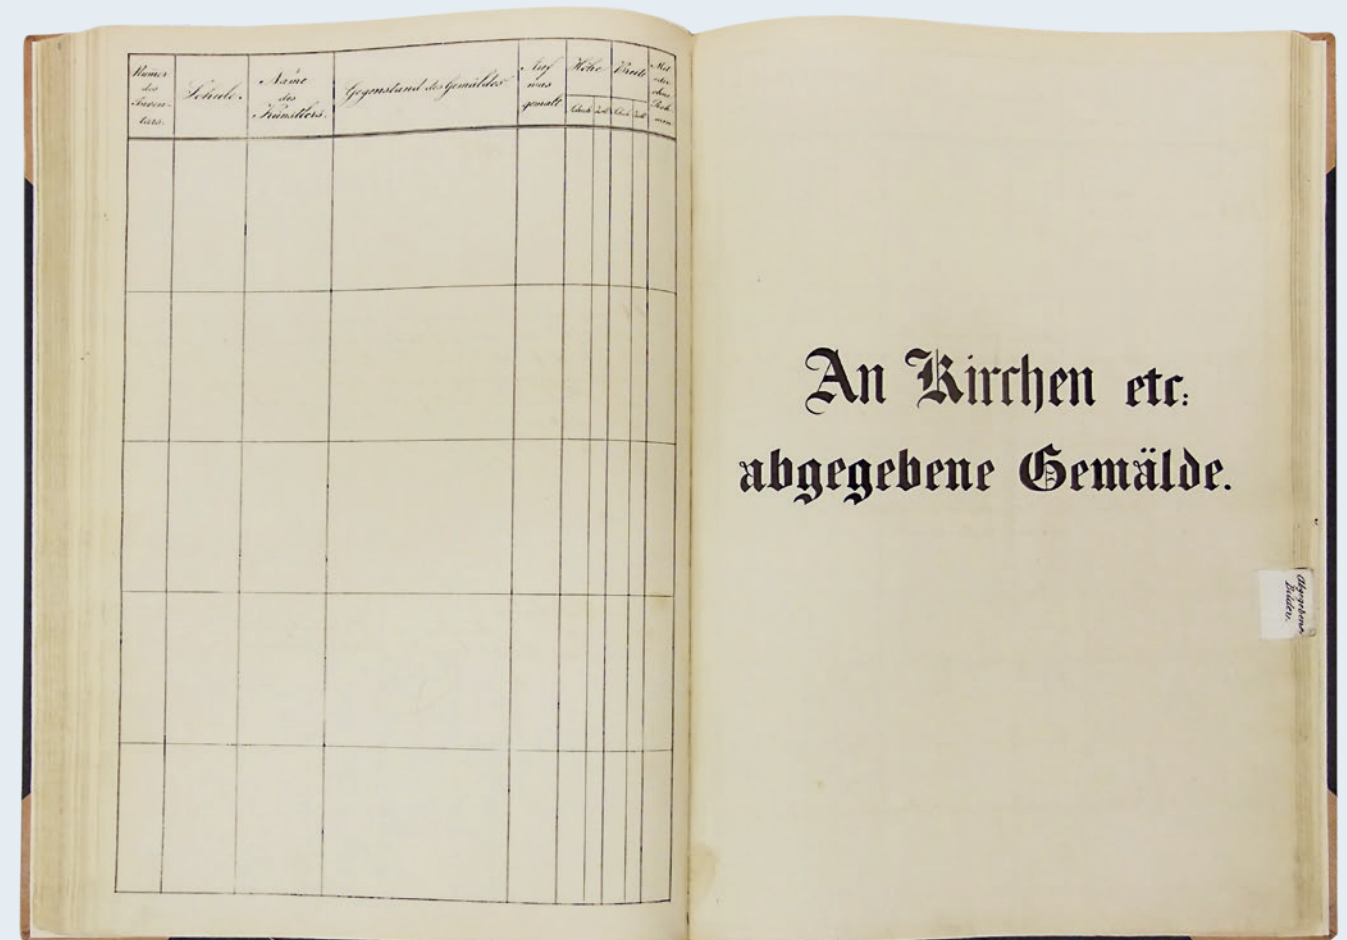 Numer
des
Inven-
tars.
Schule.
Name
des
Künstlers.
Gegenstand des Gemäldes
Auf
was
gemalt
Höhe
Schuh Zoll
Breite
Schuh Zoll
Mit
oder
ohne
Rah-
men
An Kirchen etc:
abgegebene Gemälde.
Abgegebene
Bilder.